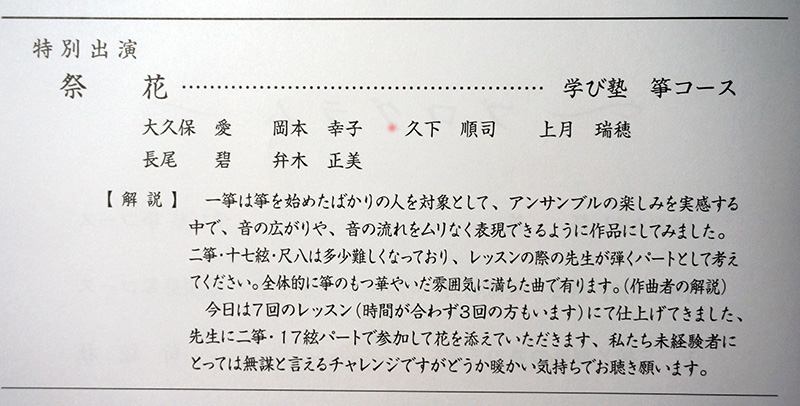 特別出演
祭　花 …………………………………………… 学び塾　箏コース
大久保　愛　　岡本　幸子　　久下　順司　　上月　瑞穂
長尾　　碧　　弁木　正美
【解説】　一箏は箏を始めたばかりの人を対象として、アンサンブルの楽しみを実感する
中で、音の広がりや、音の流れをムリなく表現できるように作品にしてみました。
二箏・十七絃・尺八は多少難しくなっており、レッスンの際の先生が弾くパートとして考え
てください。全体的に箏のもつ華やいだ雰囲気に満ちた曲で有ります。（作曲者の解説）
今日は７回のレッスン（時間が合わず３回の方もいます）にて仕上げてきました、
先生に二箏・１７絃パートで参加して花を添えていただきます、私たち未経験者に
とっては無謀と言えるチャレンジですがどうか暖かい気持ちでお聴き願います。